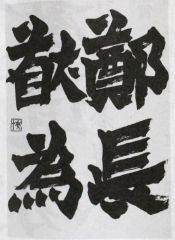 鄭長
猷為